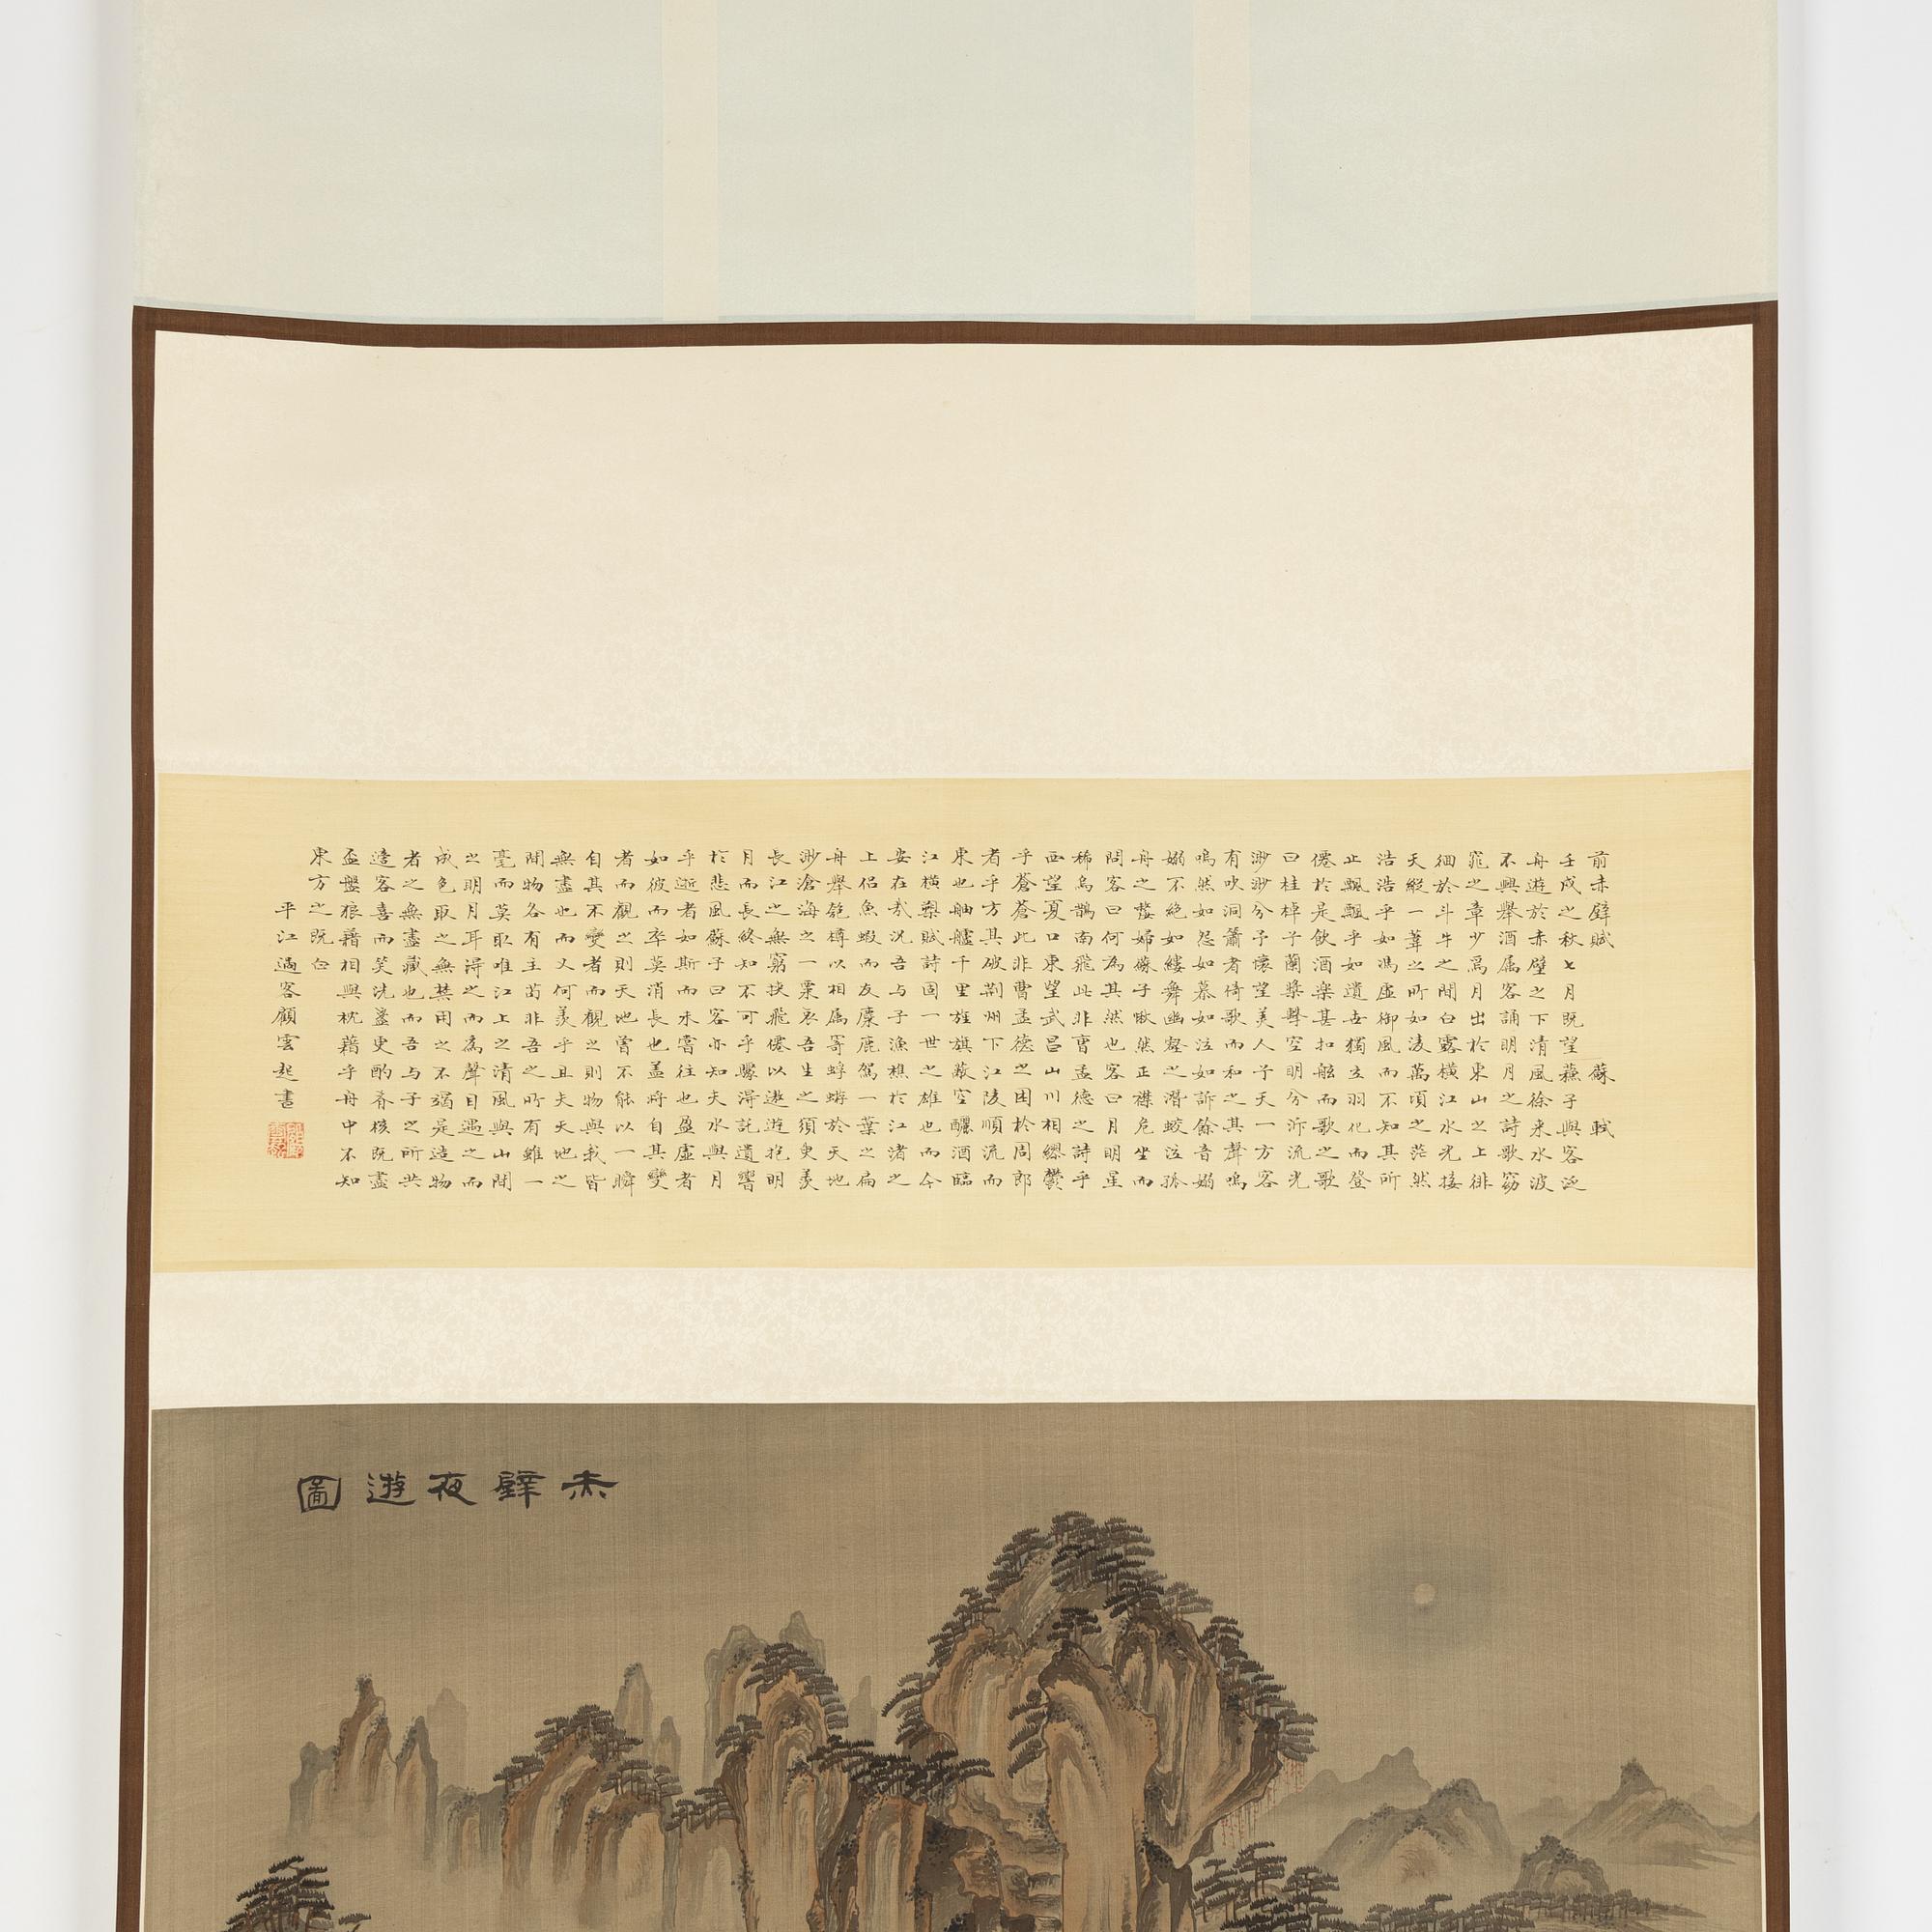 前赤壁賦 蘇 軾
壬戌之秋七月既望蘇子與客泛
舟遊於赤壁之下清風徐来水波
不興舉酒属客誦明月之詩歌窈
窕之章少焉月出於東山之上徘
徊於斗牛之間白露横江水光接
天縱一葦之所如凌萬頃之茫然
浩浩乎如馮虚御風而不知其所
止飄飄乎如遺世獨立羽化而登
僊於是飲酒楽甚扣舷而歌之歌
曰桂棹子蘭槳擊空明兮泝流光
渺渺兮予懐望美人子天一方客
有吹洞簫者倚歌而和之其聲嗚
嗚然如怨如慕如泣如訴餘音嫋
嫋不絶如縷舞幽壑之潜蛟泣孤
舟之嫠婦蘇子愀然正襟危坐而
問客曰何為其然也客曰月明星
稀烏鵲南飛此非曹孟徳之詩乎
西望夏口東望武昌山川相繆欝
乎蒼蒼此非曹孟徳之困於周郎
者乎方其破荆州下江陵順流而
東也舳艫千里旌旗蔽空釃酒臨
江横槊賦詩固一世之雄也而今
安在哉况吾与子漁樵於江渚之
上侣魚蝦而友麋鹿駕一葉之扁
舟舉匏樽以相属寄蜉蝣於天地
渺滄海之一粟哀吾生之須臾羨
長江之無窮挟飛僊以遨遊抱明
月而長終知不可乎驟得託遺響
於悲風蘇子曰客亦知夫水與月
乎逝者如斯而未嘗往也盈虚者
如彼而卒莫消長也盖将自其變
者而觀之則天地曾不能以一瞬
自其不變者而觀之則物與我皆
無盡也而又何羨乎且夫天地之
間物各有主苟非吾之所有雖一
毫而莫取唯江上之清風與山間
之明月耳得之而為聲目遇之而
成色取之無禁用之不竭是造物
者之無盡藏也而吾与子之所共
造客喜而笑洗盞更酌肴核既盡
盃盤狼藉相與枕藉乎舟中不知
東方之既白
平江過客顧雲起書
赤壁夜遊圖